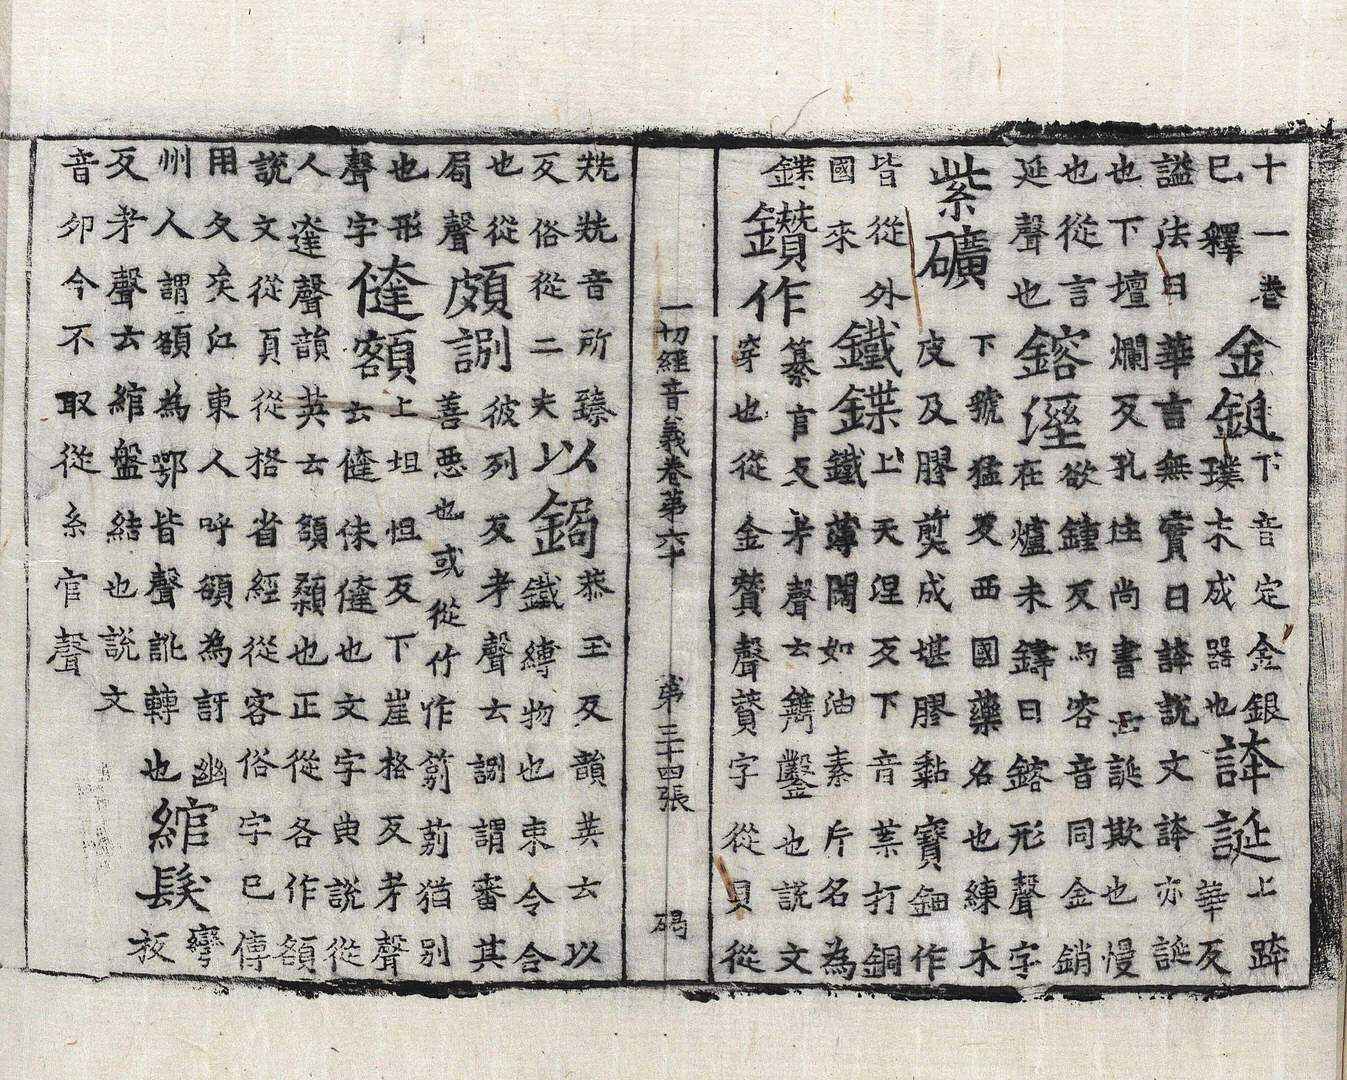 十一卷
巳釋
金鋌
下音定金銀
璞未成器也
誇誕
上跨
華反
謚法曰華言無實曰誇說文誇亦誕
也下壇爛反孔注尚書云誕欺也慢
也從言
延聲也
鎔溼
欲鍾反与容音同金銷
在爐未鑄曰鎔形聲字
紫礦
下虢猛反西國藥名也練木
皮及膠煎成堪膠黏寶鈿作
皆從外
國來
鐵鍱
上天涅反下音葉打銅
鐵薄闊如油素斤名為
鍱
鑚作
纂官反考聲云鐫鑿也說文
穿也從金贊聲贊字從貝從
一切經音義卷第六十 第三十四張 碣
兟兟音所臻
反俗從二夫
以鋦
恭玉反韻英云以
鐵縛物也束令合
也從
局聲
頗𧧸
彼列反考聲云𧧸謂審其
善惡也或從竹作䇷莂猶別
也形
聲字
㒓額
上坦怛反下崖格反考聲
云㒓侏㒓也文字典說從
人達聲韻英云額顙也正從各作頟
說文從頁從格省經從客俗字巳傳
用久矣江東人呼頟為訝幽
州人謂額為鄂皆聲訛轉也
綰髮
彎
板
反考聲云綰盤結也說文
音卯今不取從糸官聲